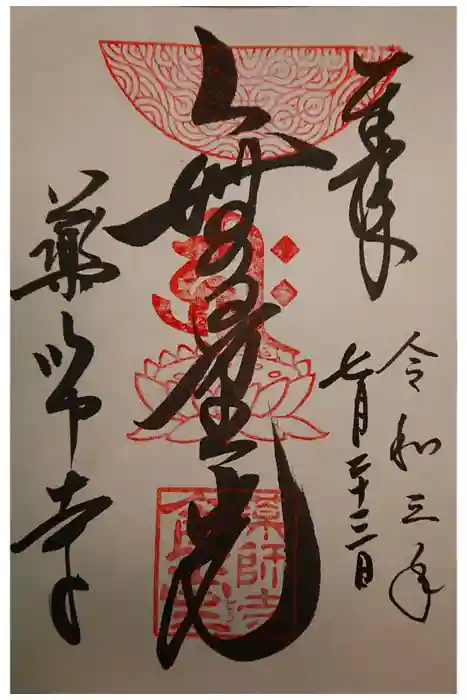 奉拝
令和三年
七月二十二日
無量光
薬師寺
薬師寺